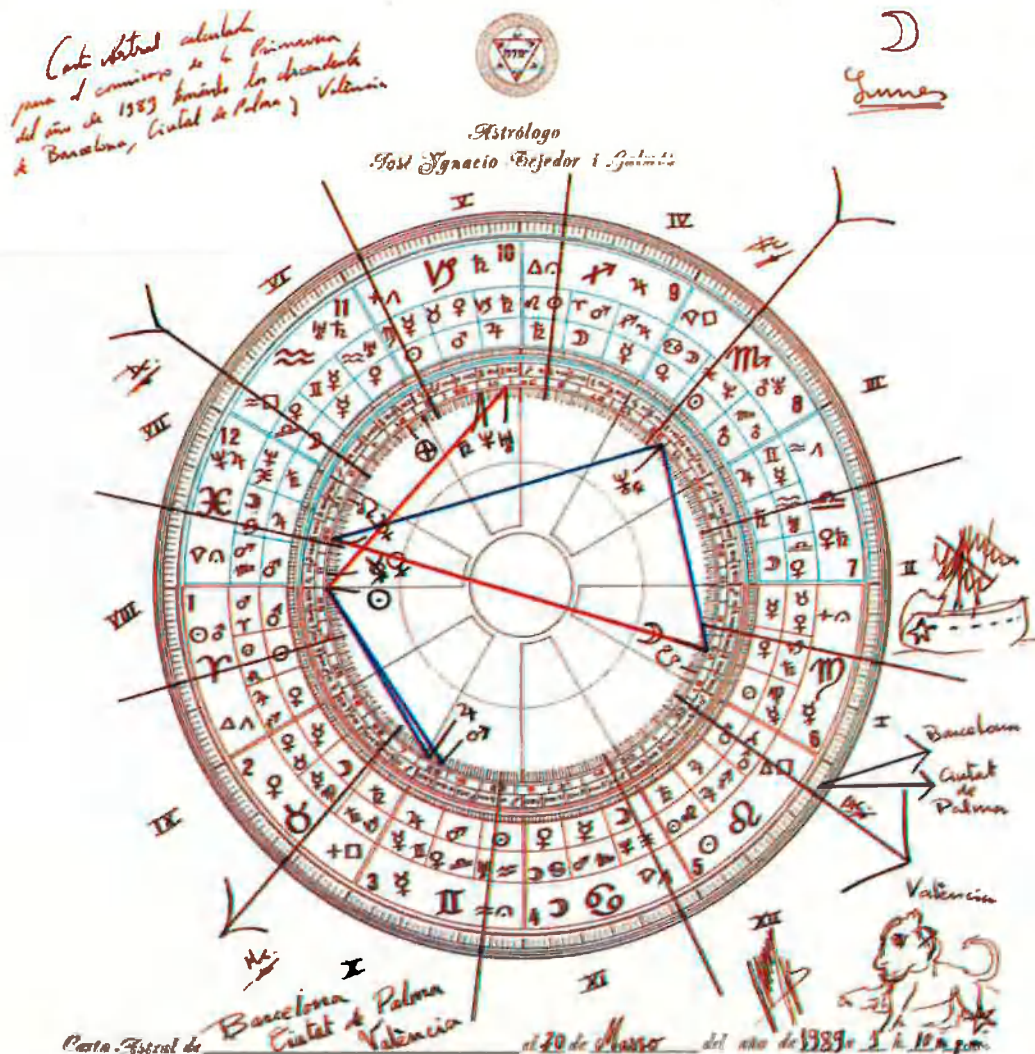 Carta Astral calculada
para el comienzo de la Primavera
del año de 1989 tomando los ascendentes
de Barcelona, Ciutat de Palma y València
Lunes
Astrólogo
José Ignacio Tejedor i
V
IV
VI
III
VII
II
VIII
I
IX
X
XI
XII
10
11
9
8
12
7
1
6
2
5
3
4
Barcelona
Ciutat
de
Palma
València
Mc.
Barcelona
Ciutat de Palma
València
Carta Astral de el 20 de Marzo del año de 1989